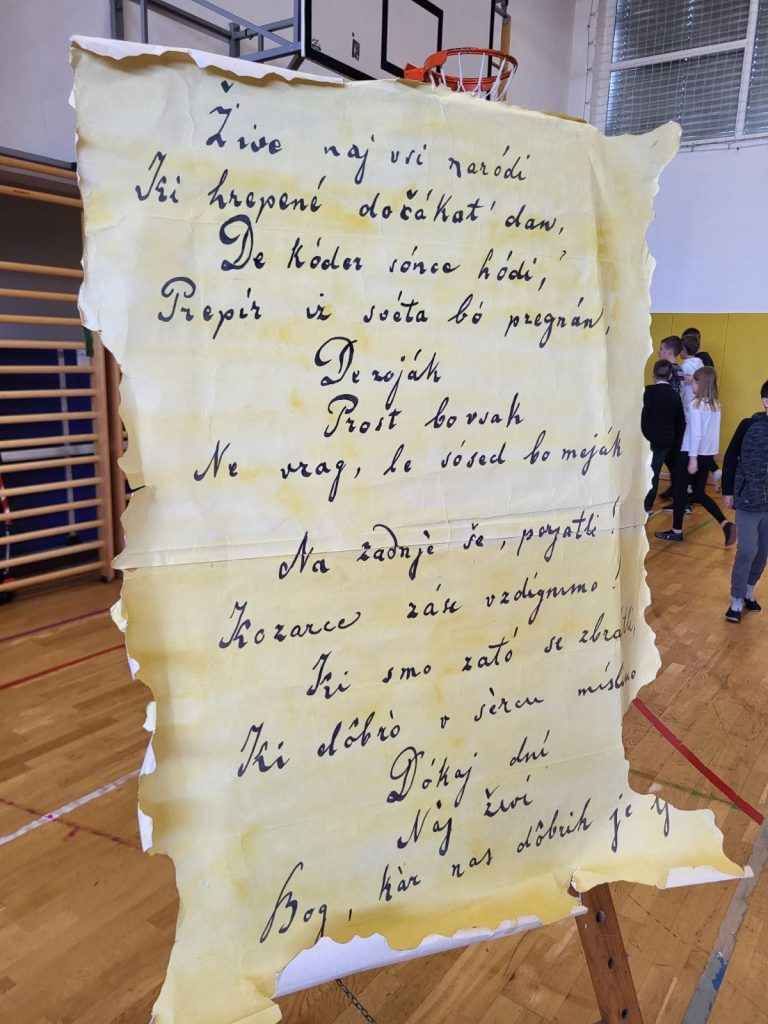 Žive naj vsi naródi
Ki hrepené dočákat' dan,
De kóder sónce hódi,
Prepír iz svéta bó pregnán,
De roják
Prost bo vsak
Ne vrag, le sósed bo meják
Na zadnjè še, perjatli!
Kozarce záse vzdígnimo!
Ki smo zató se zbratli,
Ki dôbrò v sèrcu míslimo
Dókaj dní
Nàj živí
Bog, kàr nas dôbrih je